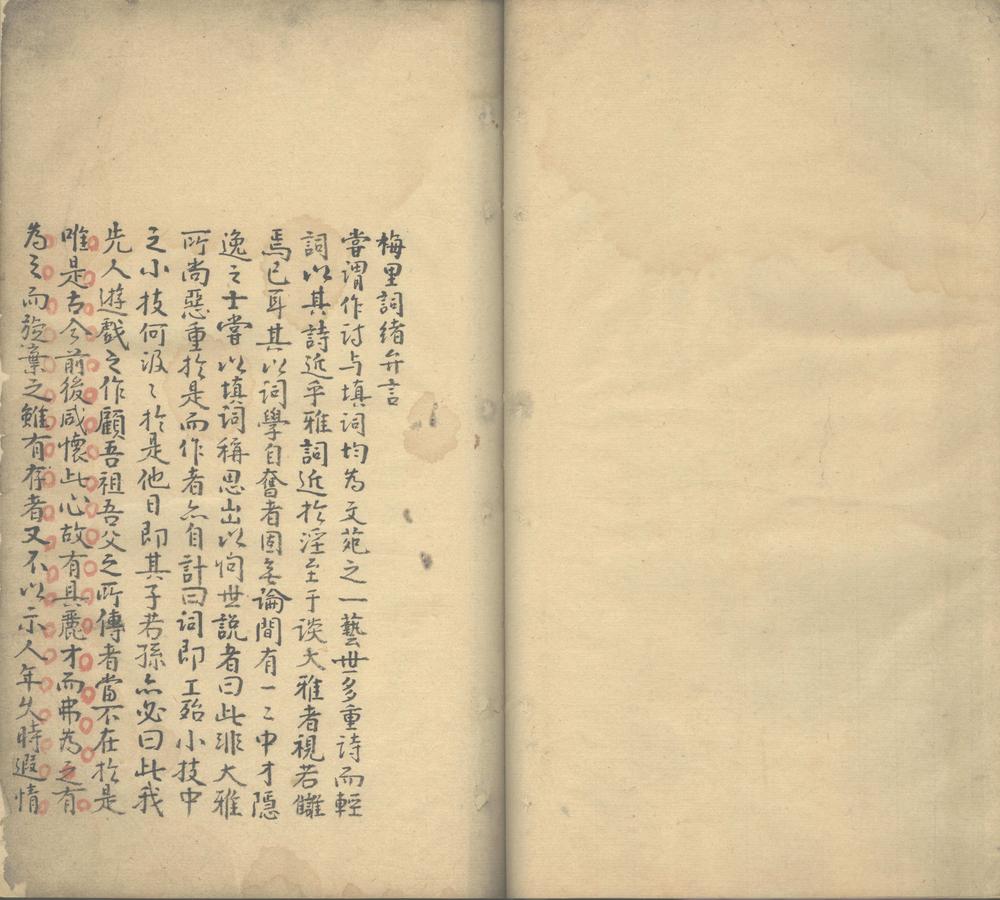 梅里詞緒弁言
嘗謂作詩与填詞均為文苑之一藝世多重詩而輕
詞以其詩近乎雅詞近於淫至于谈大雅者視若雠
焉已耳其以词學自奮者固無論間有一二中才隱
逸之士嘗以填詞稱思出以问世説者曰此非大雅
所尚惡重於是而作者亦自計曰词即工殆小技中
之小技何汲〻於是他日即其子若孫亦必曰此我
先人遊戲之作顧吾祖吾父之所傳者當不在於是
唯是古今前後咸懷此心故有具麗才而弗為之有
為之而旋棄之雖有存者又不以示人年久時遐情